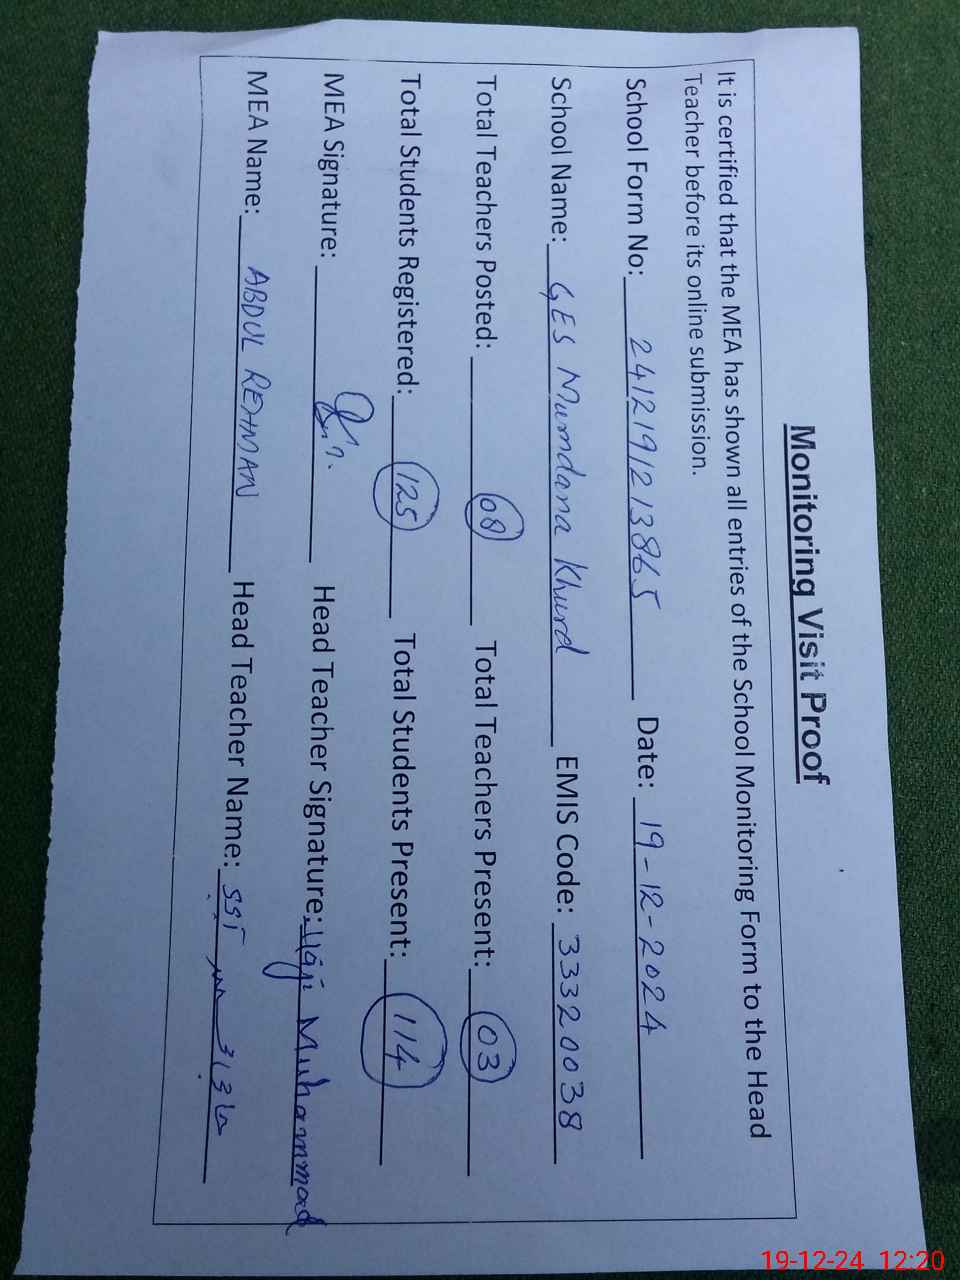 Monitoring Visit Proof
It is certified that the MEA has shown all entries of the School Monitoring Form to the Head
Teacher before its online submission.
School Form No: 2412191213865 Date: 19-12-2024
School Name: GES Mumdana Khurd EMIS Code: 33320038
Total Teachers Posted: 08 Total Teachers Present: 03
Total Students Registered: 125 Total Students Present: 114
MEA Signature: Head Teacher Signature: Muhammad
MEA Name: ABDUL REHMAN Head Teacher Name: SST
19-12-24 12:20